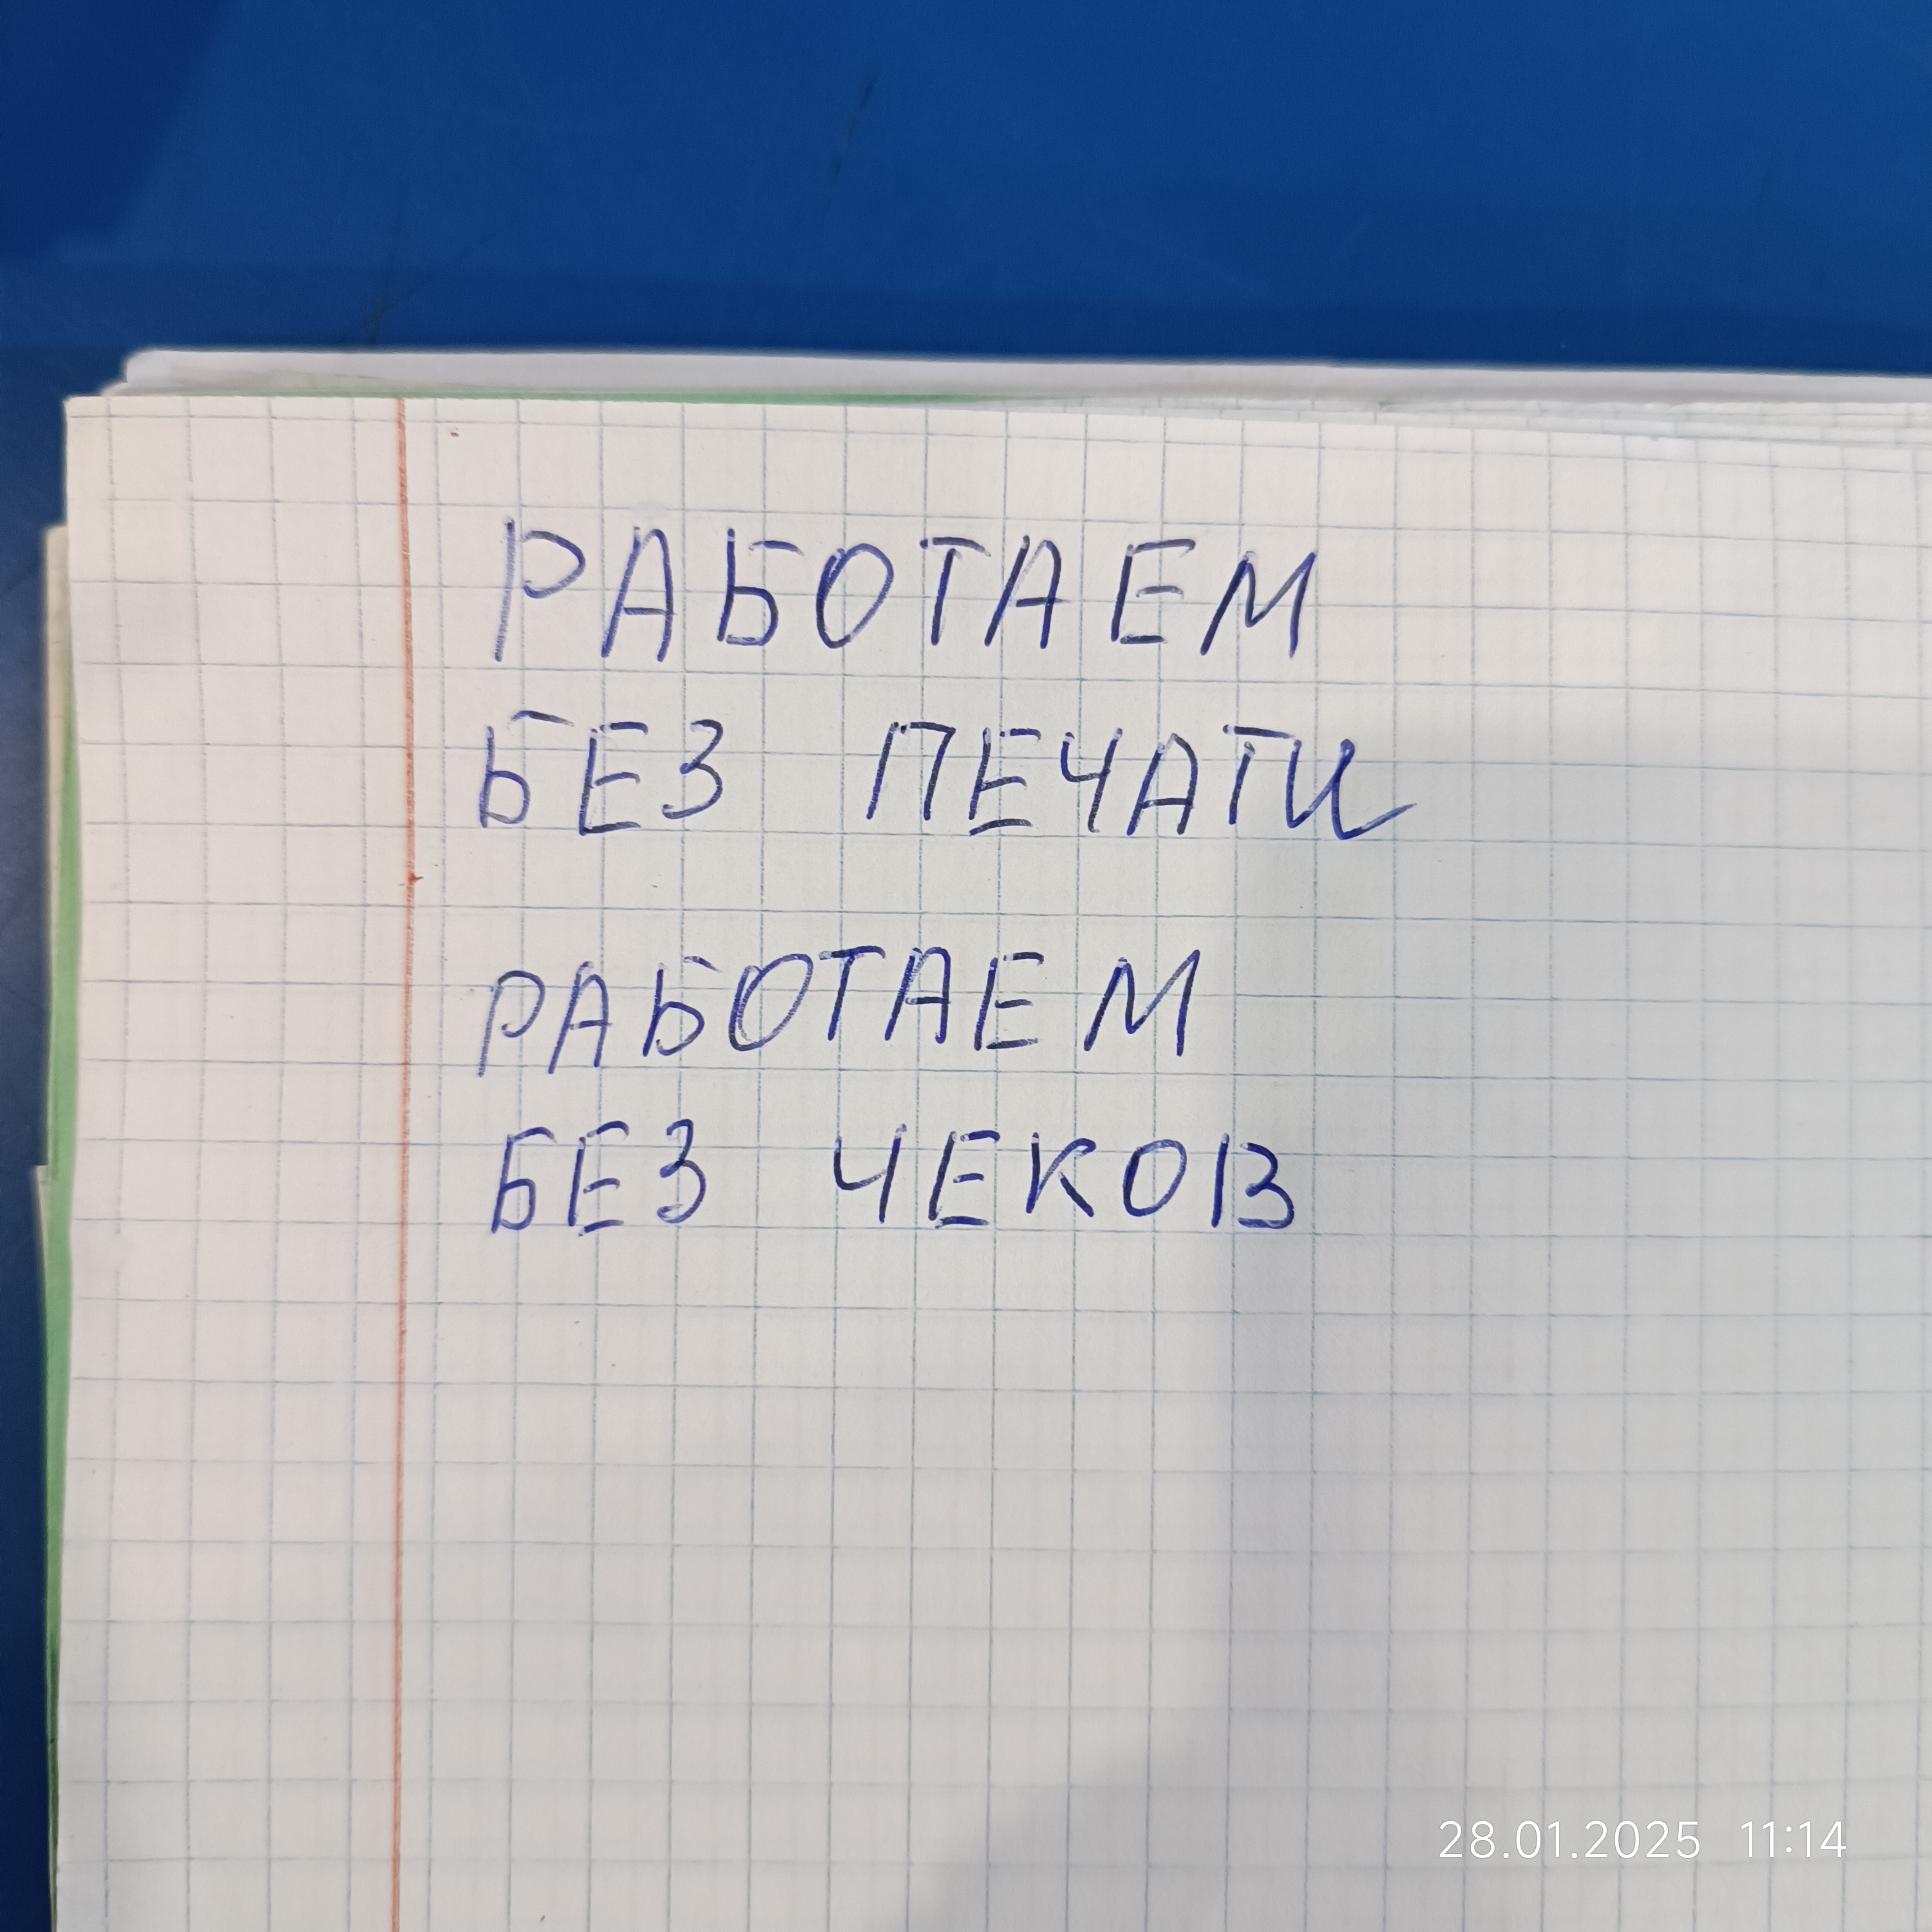 РАБОТАЕМ
БЕЗ ПЕЧАТИ
РАБОТАЕМ
БЕЗ ЧЕКОВ
28.01.2025 11:14